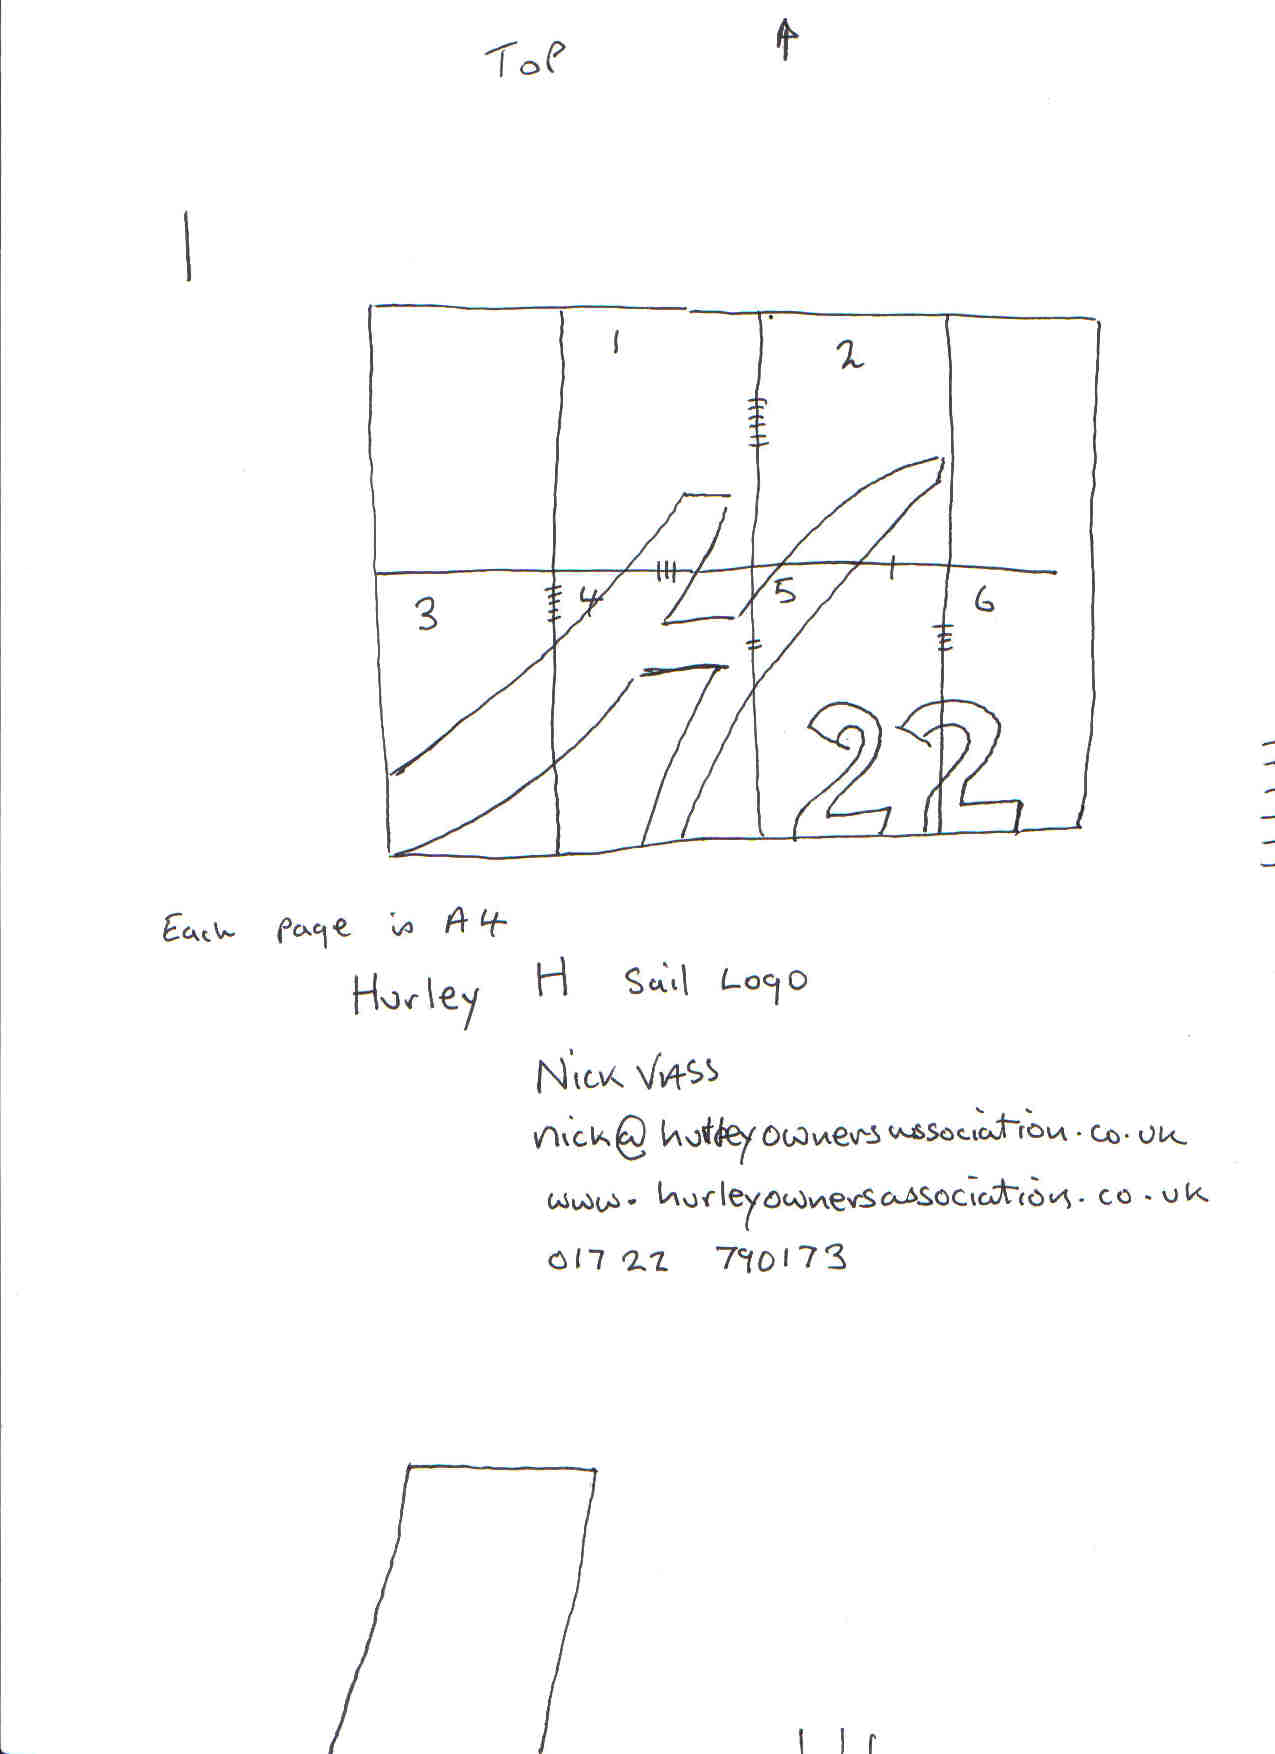 TOP
1
1 2
3 4 5 6
22
Each page is A4
Hurley H Sail Logo
Nick VASS
nick@hurleyownersassociation.co.uk
www.hurleyownersassociation.co.uk
01722 790173